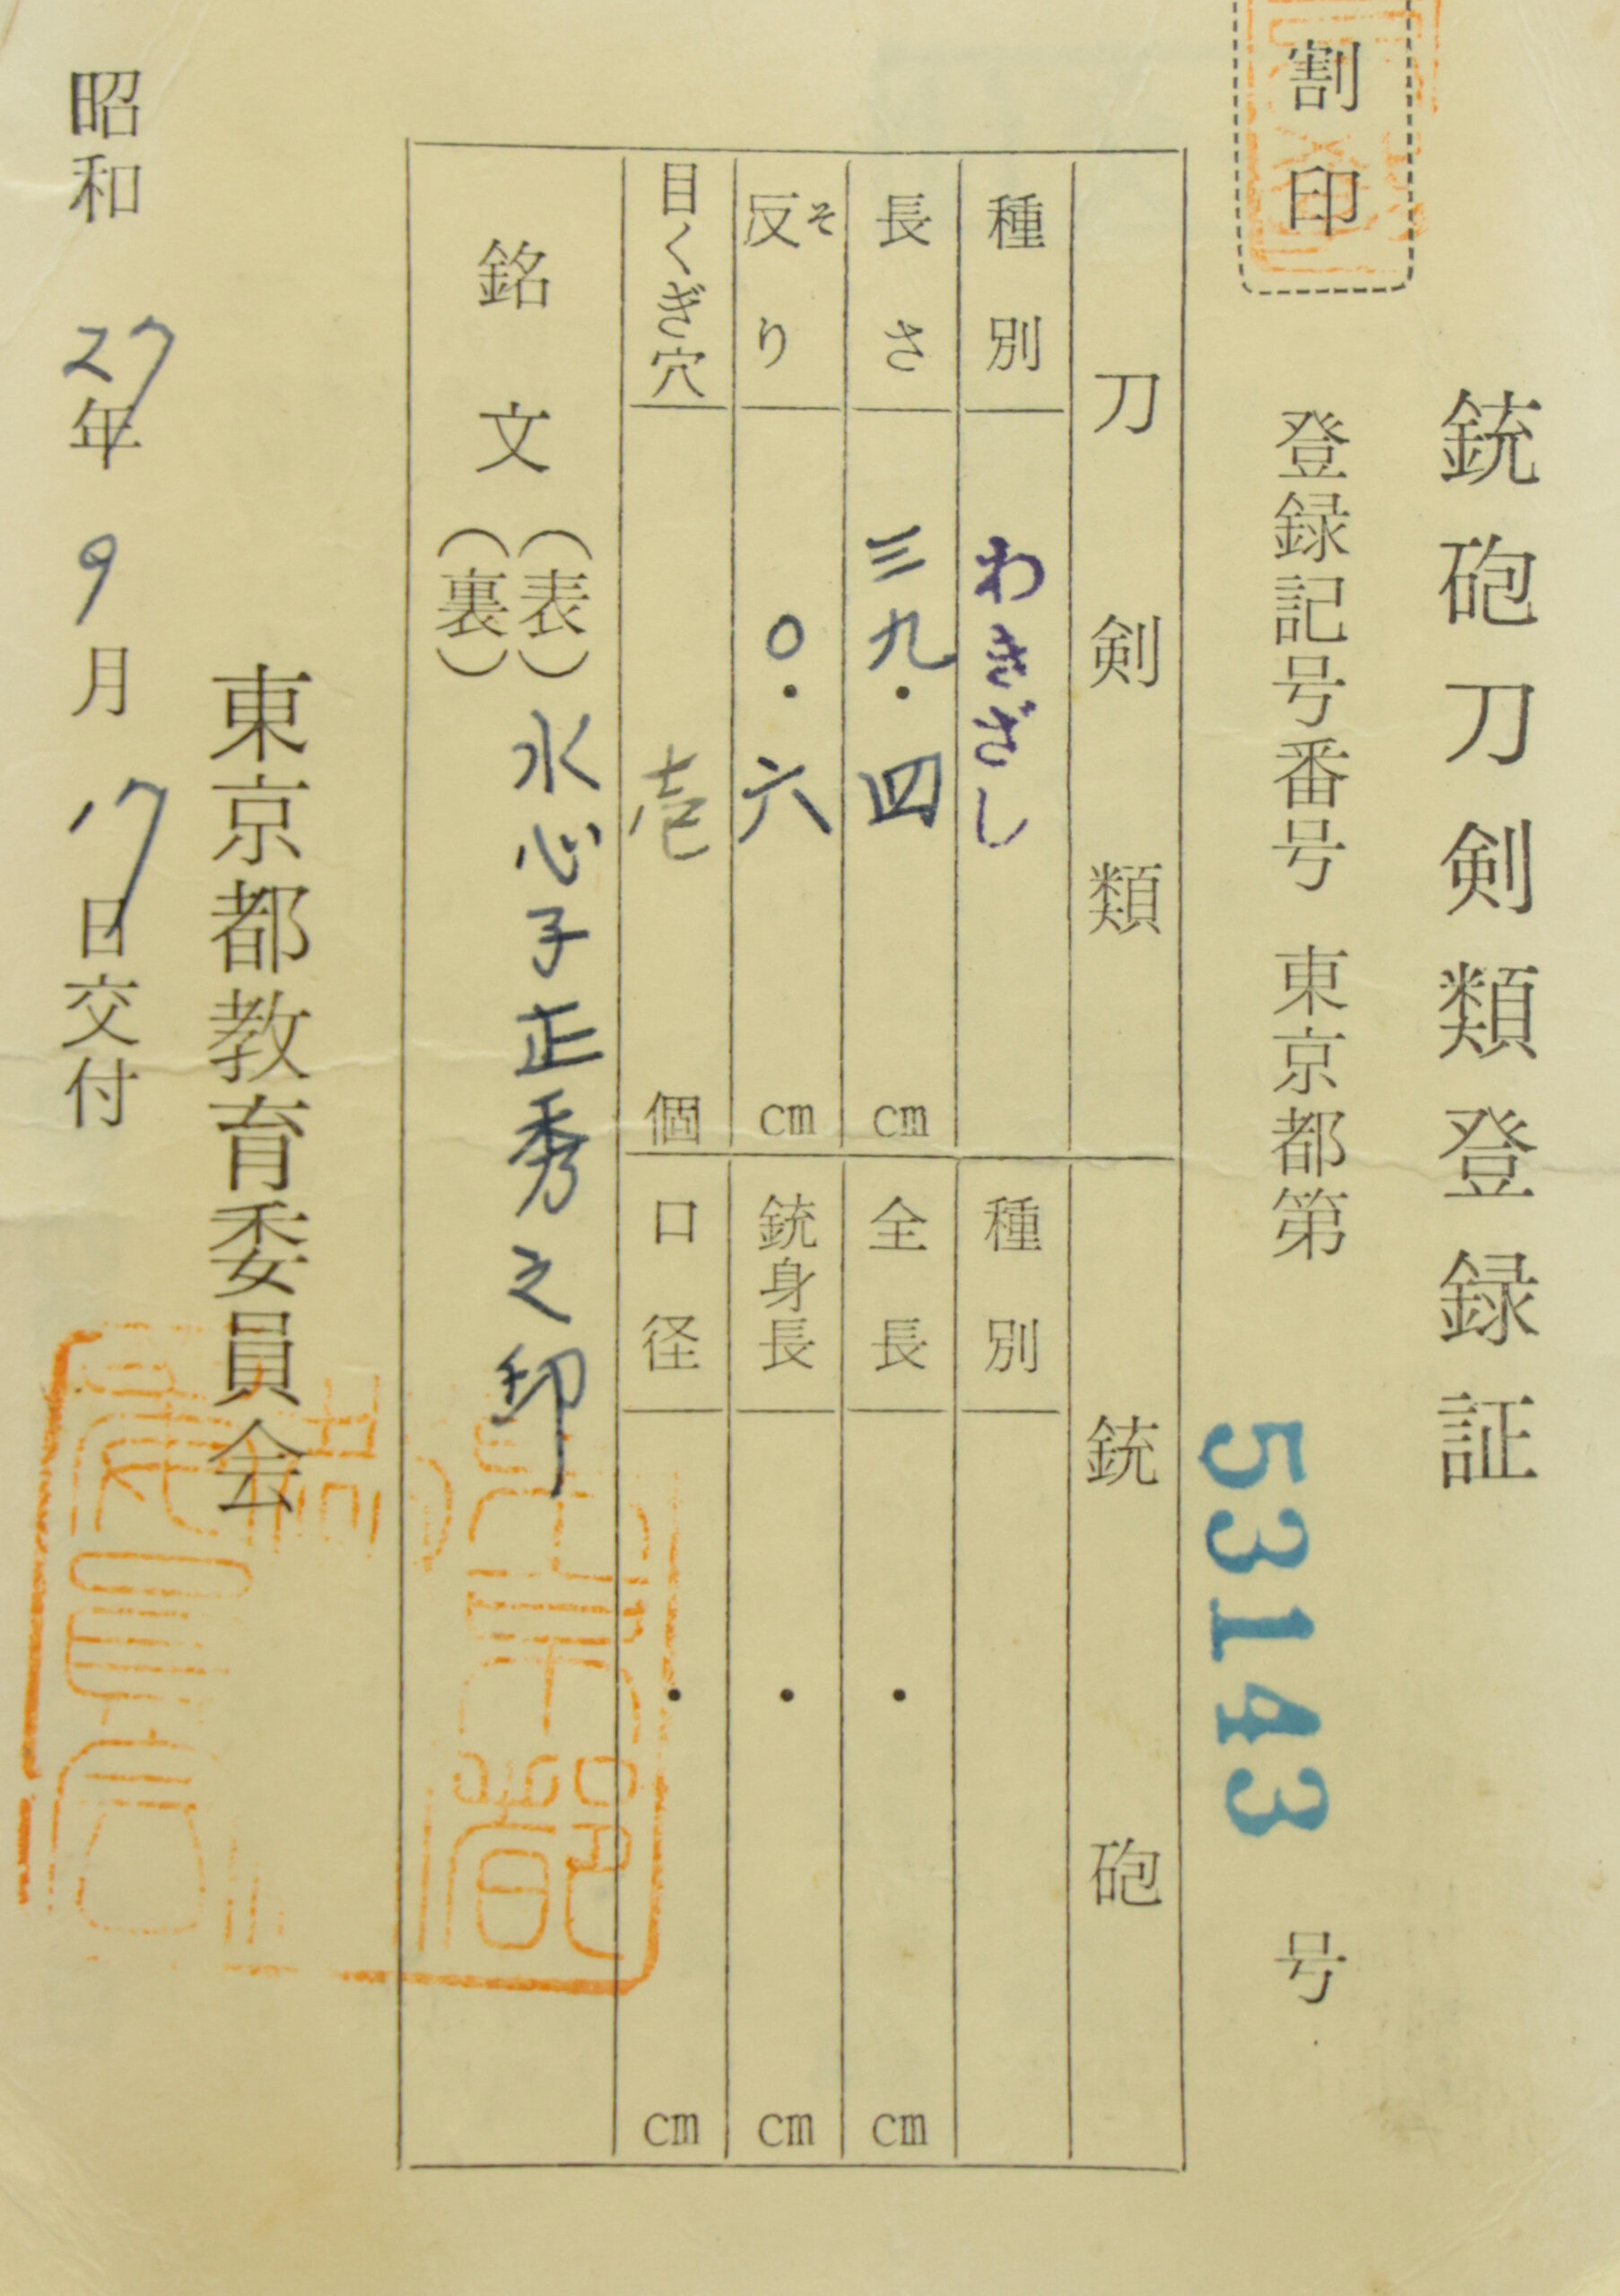 銃砲刀剣類登録証
割印
登録記号番号 東京都第 53143 号
刀剣類
種別 わきざし
長さ 三九・四 cm
反り そ 〇・六 cm
目くぎ穴 壱 個
銃砲
種別
全長 ・ cm
銃身長 ・ cm
口径 ・ cm
銘文 (表) 水心子正秀之印
(裏)
東京都教育委員会
昭和 27年 9月 17日交付